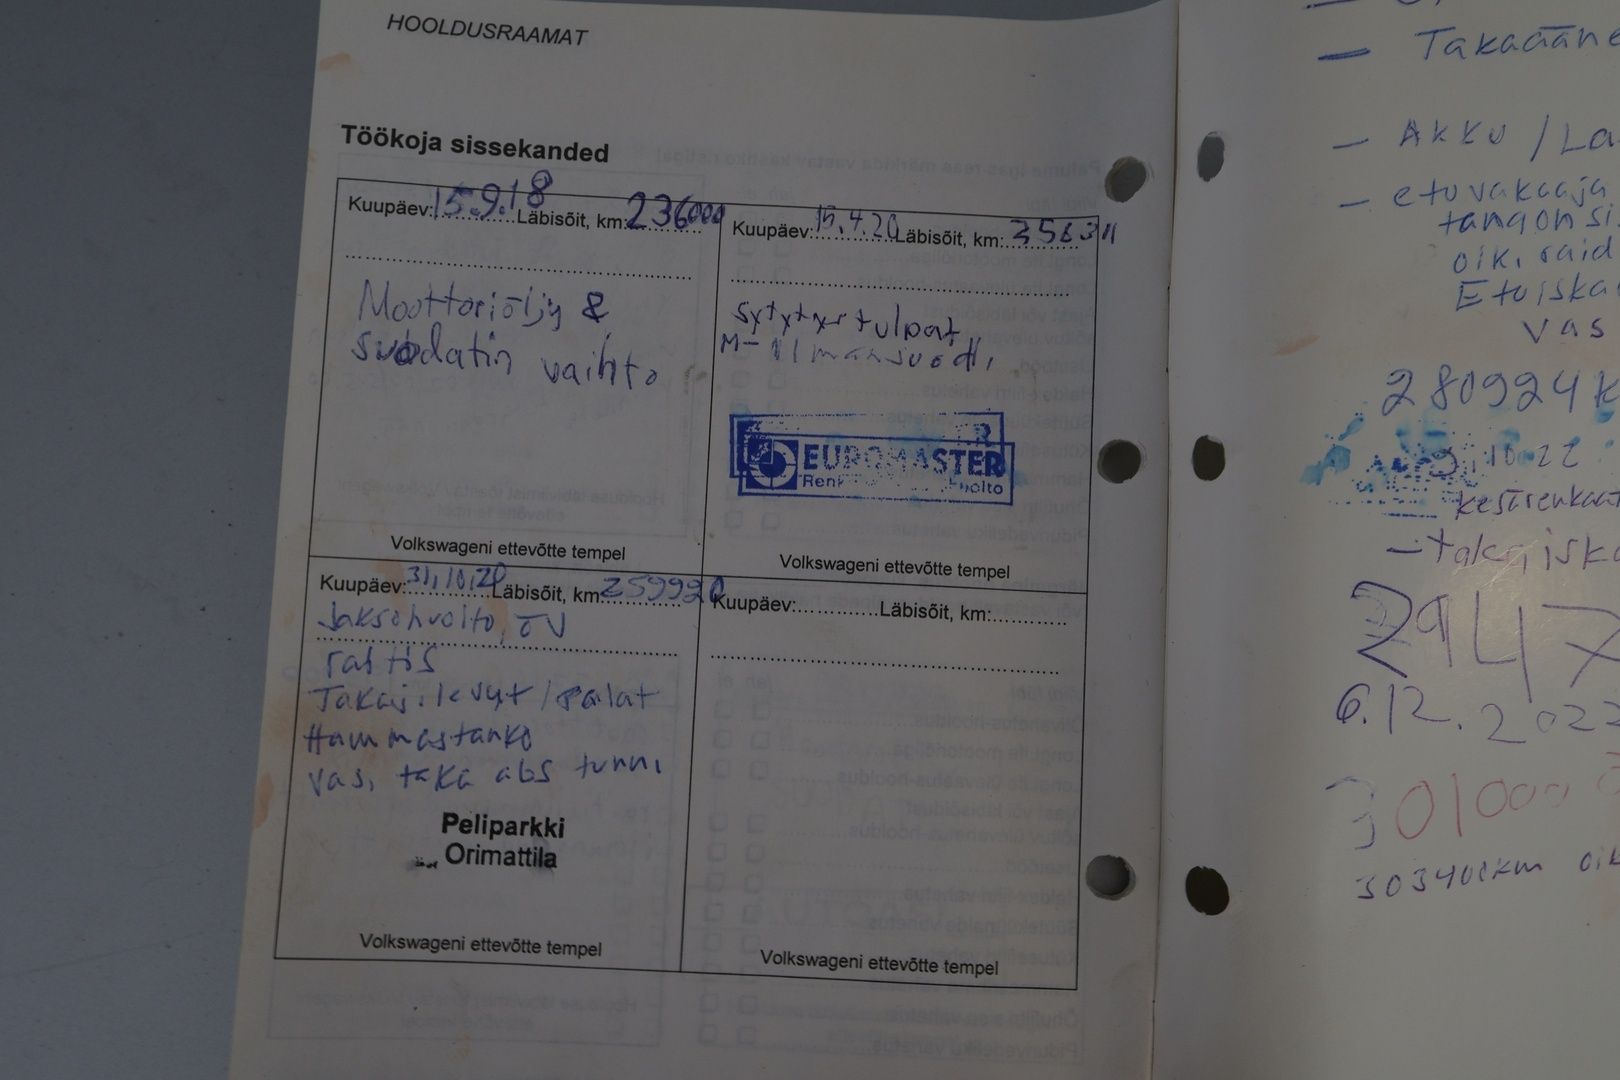 HOOLDUSRAAMAT
Töökoja sissekanded
Kuupäev: 15.9.18 Läbisõit, km: 236000
Moottoriöljy &
suodatin vaihto
Volkswageni ettevõtte tempel
Kuupäev: 15.4.20 Läbisõit, km:
sytytystulpat
M-ilmansuod.
EUROMASTER
Volkswageni ettevõtte tempel
Kuupäev: 31.10.20 Läbisõit, km: 259920
Jaksohuolto, ÖV
Takaj.levyt/palat
Hammastanko
vas. taka abs tunn.
Peliparkki
Orimattila
Volkswageni ettevõtte tempel
Kuupäev: Läbisõit, km:
Volkswageni ettevõtte tempel
— Takaääne
— AKKU / La
— etuvakaaja
tangon si
oik. raid
Etuiska
vas
280924 k
10.22
kesärenkaat
— takaiska
2947
6.12.202
301000
303400km oik